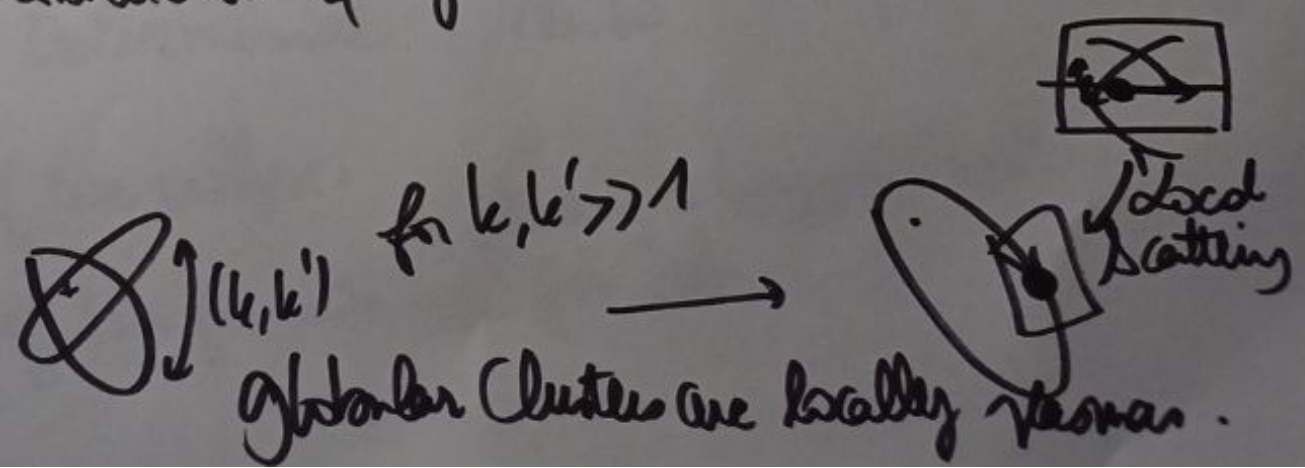 for k, k' >> 1
Local
Scattering
(k, k')
globular Clusters are locally